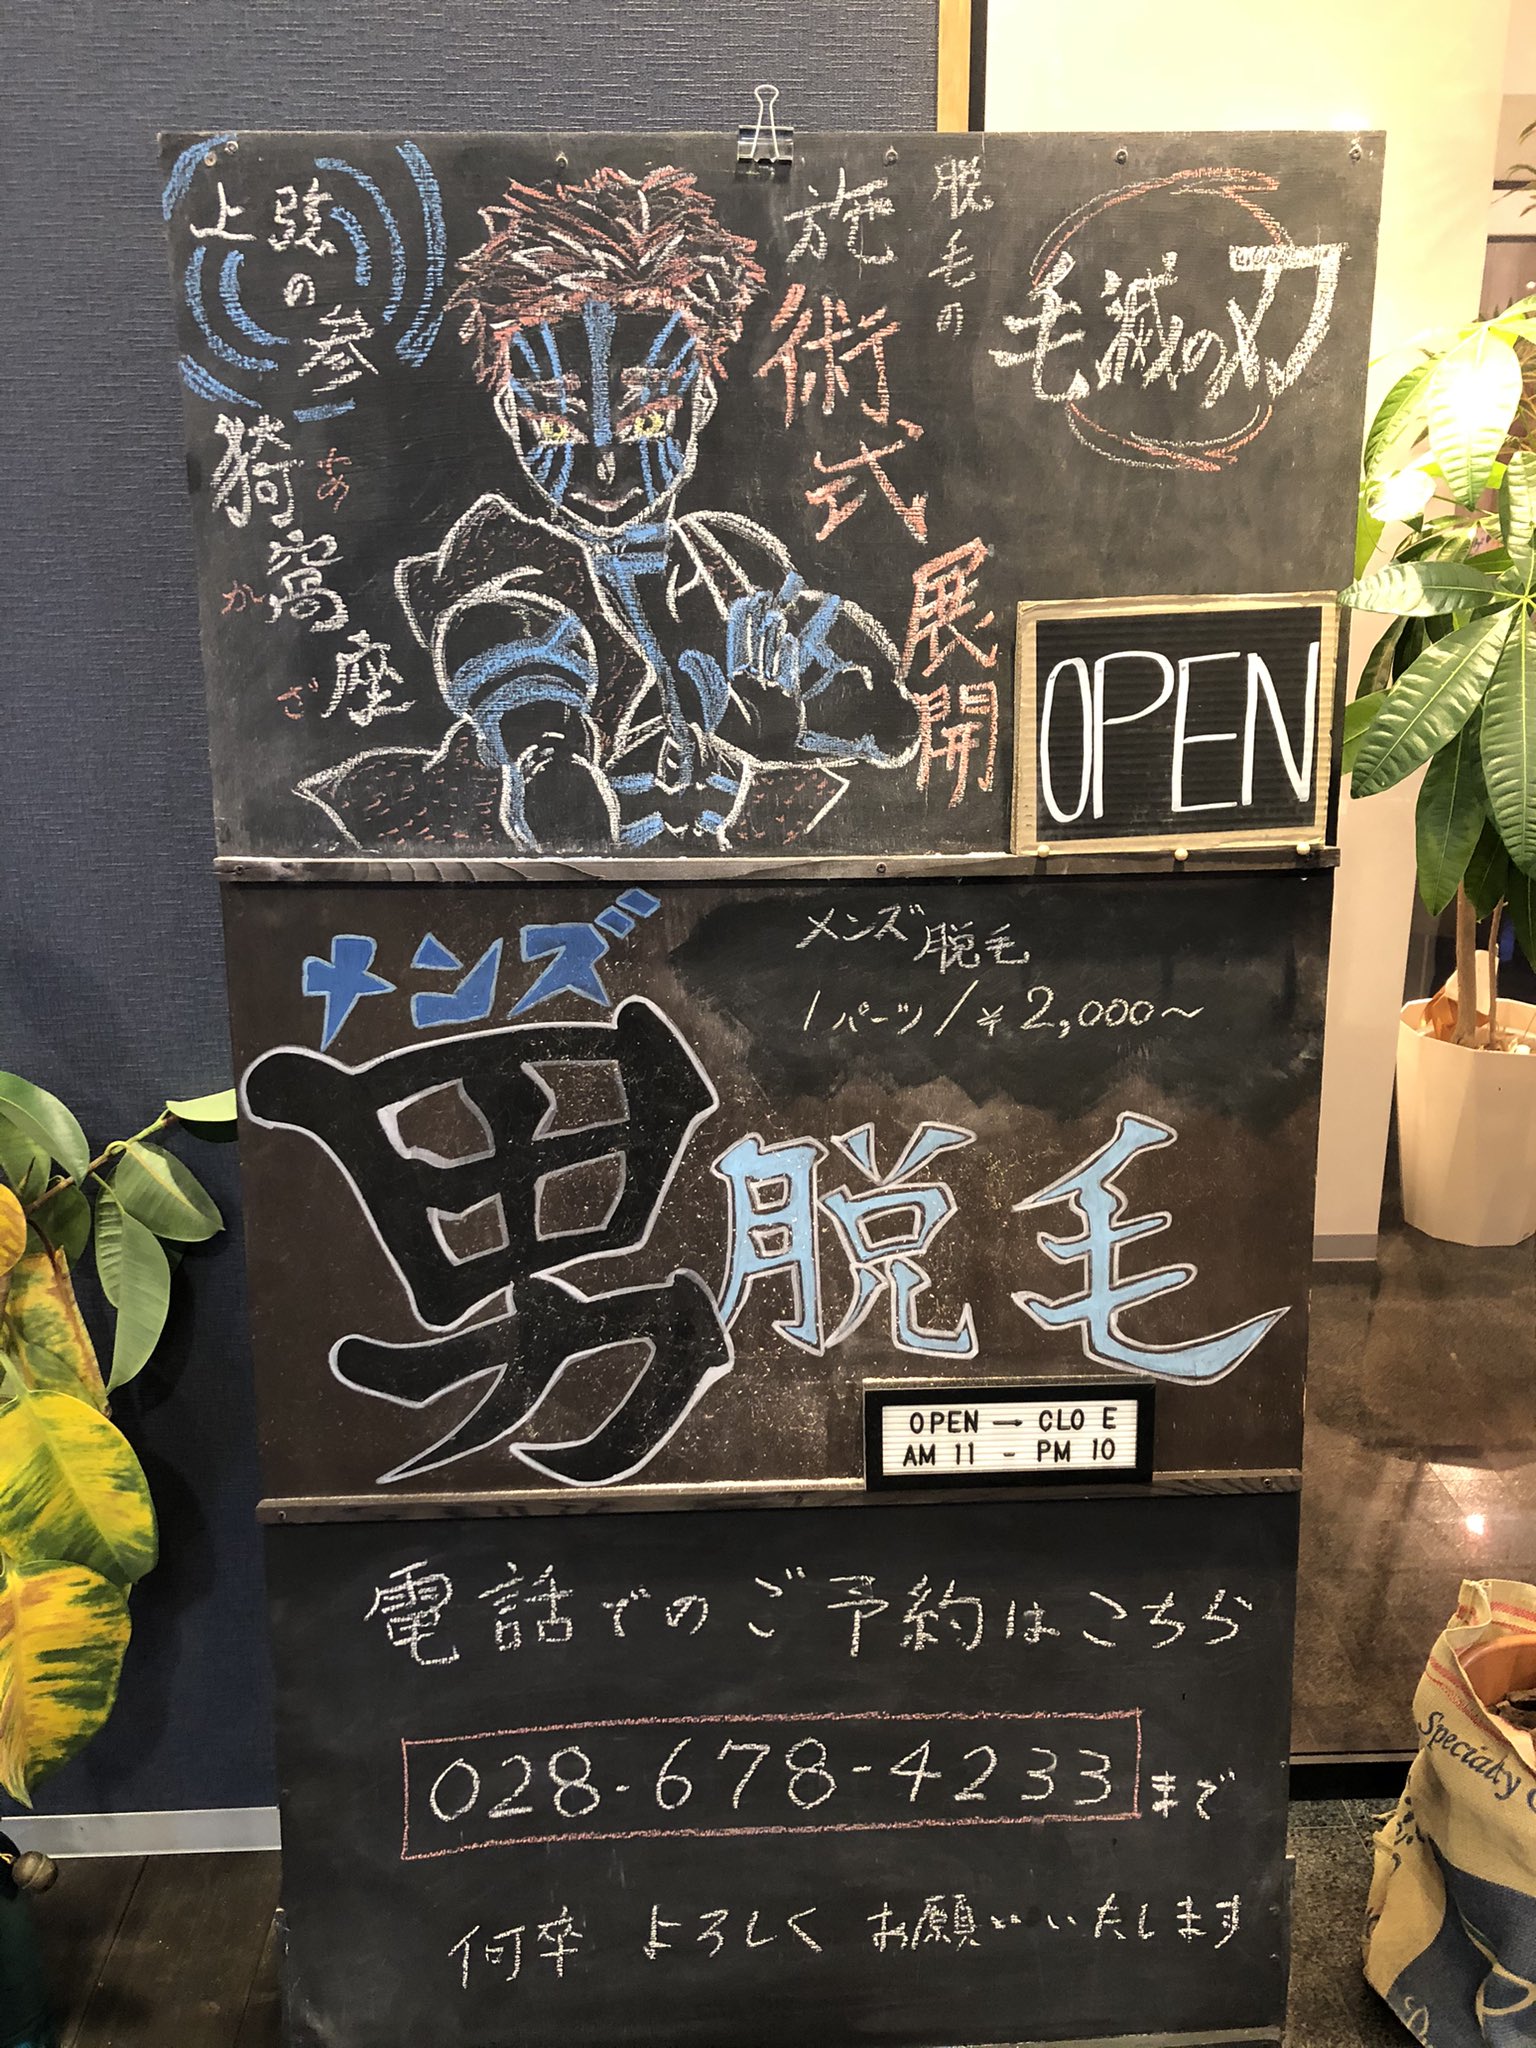 毛滅の刃
脱毛の
施術式
展開
上弦の参
猗窩座
あ
か
ざ
OPEN
メンズ
男脱毛
メンズ脱毛
1パーツ/¥2,000〜
OPEN → CLO E
AM 11 - PM 10
電話でのご予約はこちら
028-678-4233まで
何卒 よろしく お願いいたします
Specialty